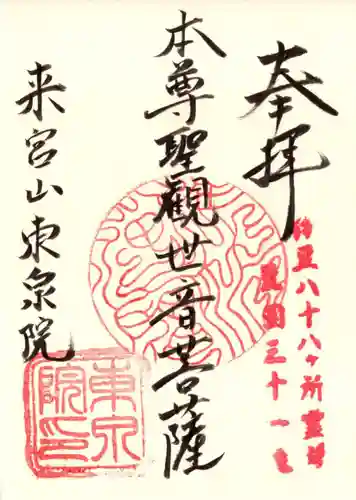 奉拝
八十八ヶ所霊場
三十一
本尊聖觀世音菩薩
来宮山東泉院
東泉院印